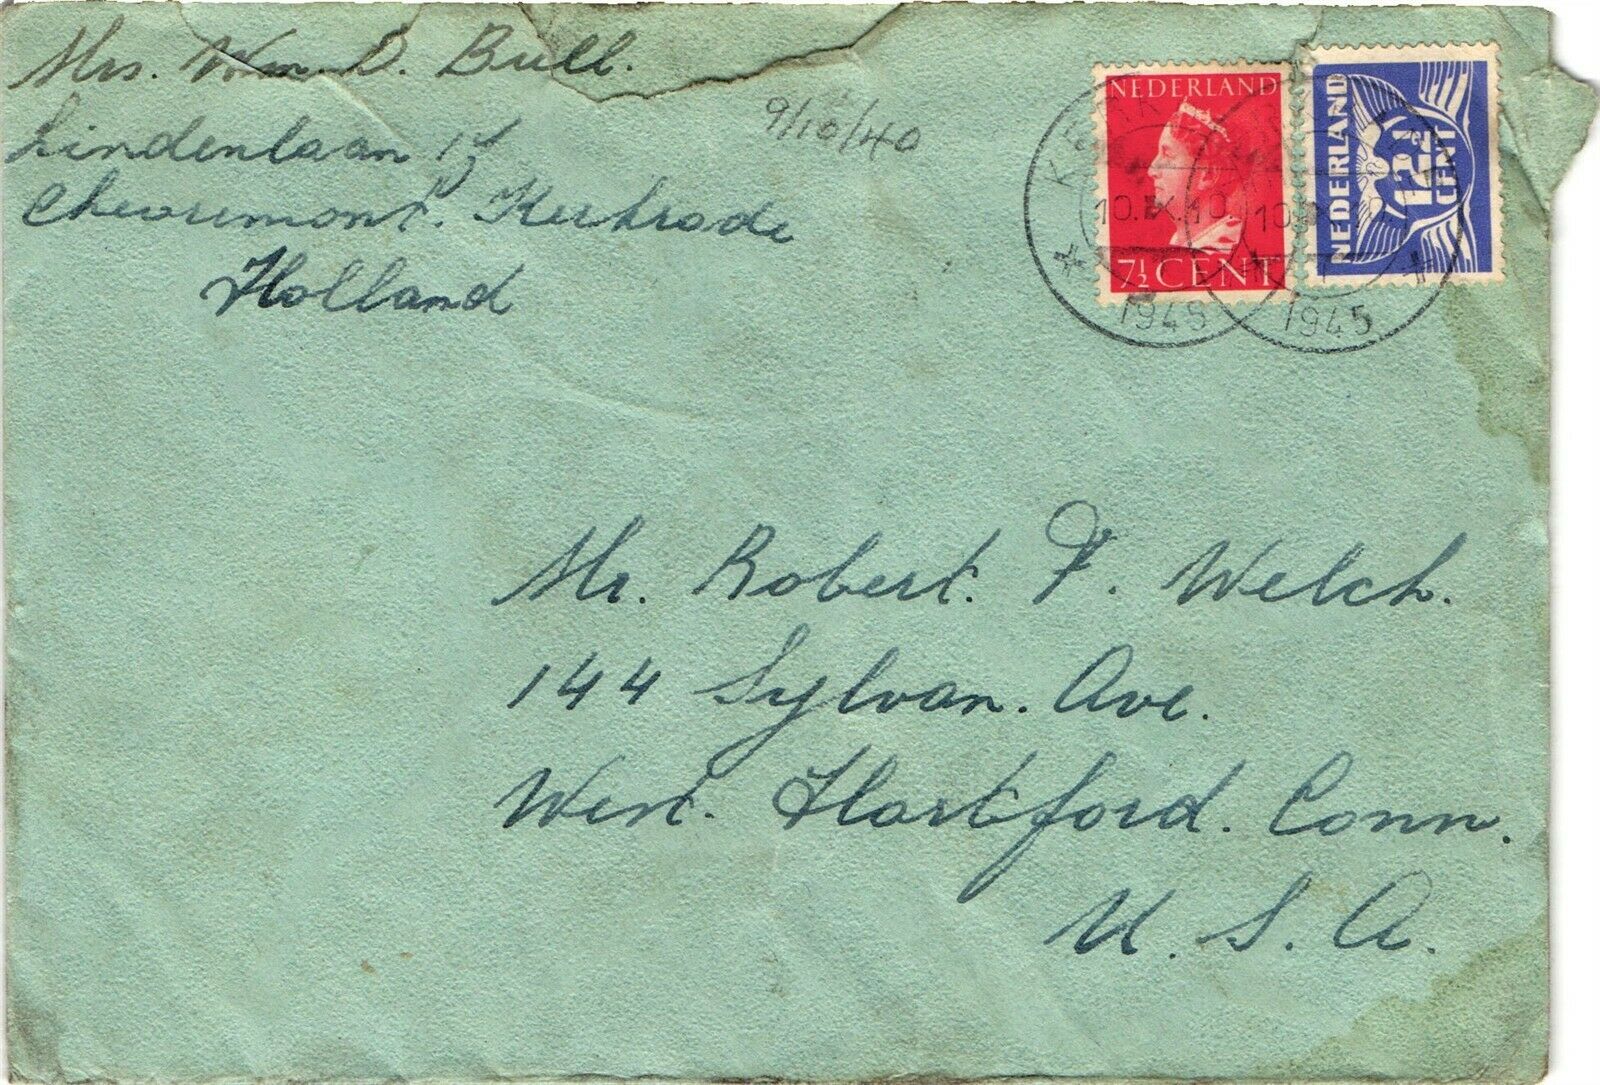 Mrs. Wm. D. Bull.
Lindenlaan 17
Chevremont. Kerkrade
Holland
9/10/40
NEDERLAND
7½ CENT
NEDERLAND
12½
CENT
10.IX.10
1945
10.IX.10
1945
Mr. Robert. F. Welch.
144 Sylvan. Ave.
West. Hartford. Conn.
U. S. A.